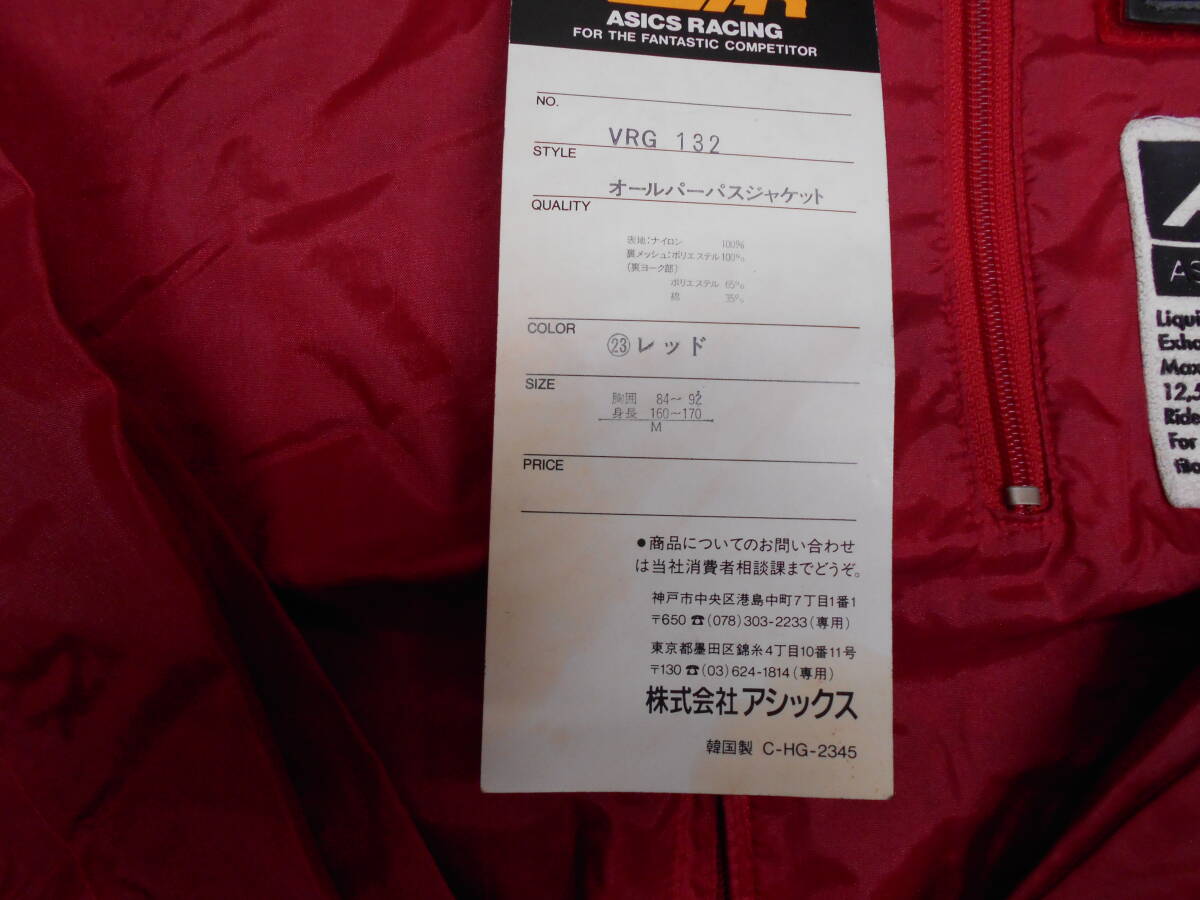 ASICS RACING
FOR THE FANTASTIC COMPETITOR
NO.
VRG 132
STYLE
オールパーパスジャケット
QUALITY
表地:ナイロン 100%
裏メッシュ:ポリエステル100%
(裏ヨーク部)
ポリエステル 65%
綿 35%
COLOR
㉓レッド
SIZE
胸囲 84〜92
身長 160〜170
M
PRICE
●商品についてのお問い合わせ
は当社消費者相談課までどうぞ。
神戸市中央区港島中町7丁目1番1
〒650 ☎(078)303-2233(専用)
東京都墨田区錦糸4丁目10番11号
〒130 ☎(03)624-1814(専用)
株式会社アシックス
韓国製 C-HG-2345
AS
Liqui
Exha
Max
12,5
Ride
For